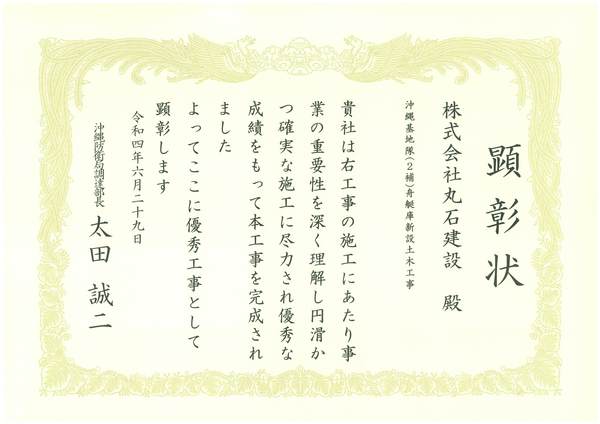 顕彰状
株式会社丸石建設 殿
沖縄基地隊(2補)舟艇庫新設土木工事
貴社は右工事の施工にあたり事
業の重要性を深く理解し円滑か
つ確実な施工に尽力され優秀な
成績をもって本工事を完成され
ました
よってここに優秀工事として
顕彰します
令和四年六月二十九日
沖縄防衛局調達部長
太田誠二